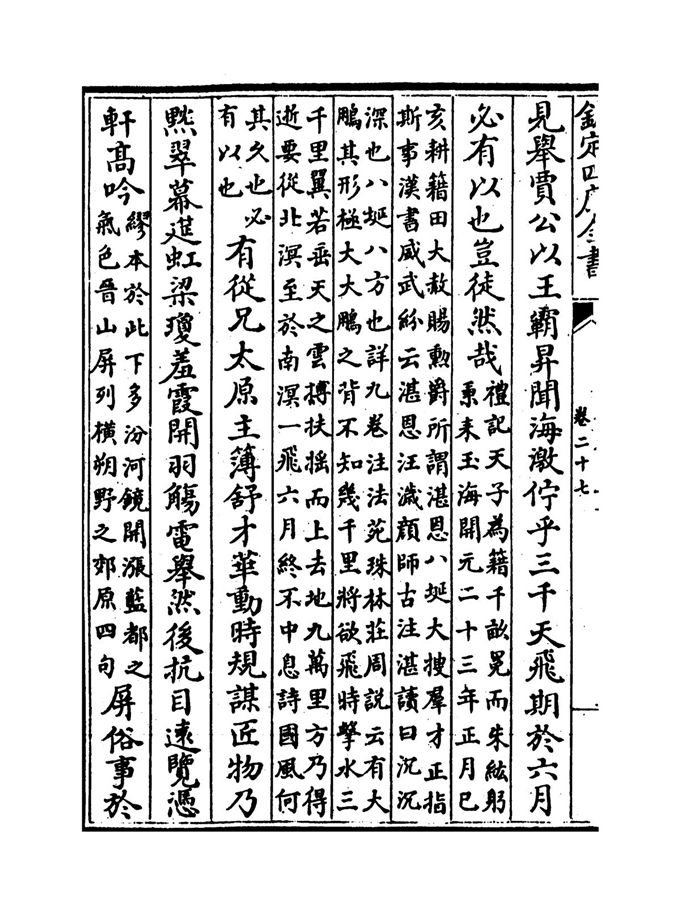 欽定四庫全書
卷二十七
見舉賈公以王霸昇聞海激佇乎三千天飛期於六月
必有以也豈徒然哉
禮記天子為籍千畝冕而朱紘躬
秉耒玉海開元二十三年正月己
亥耕籍田大赦賜勲爵所謂湛恩八埏大搜羣才正指
斯事漢書威武紛云湛恩汪濊顔師古注湛讀曰沉沉
深也八埏八方也詳九卷注法苑珠林莊周說云有大
鵬其形極大大鵬之背不知幾千里將欲飛時擊水三
千里翼若垂天之雲搏扶揺而上去地九萬里方乃得
逝要從北溟至於南溟一飛六月終不中息詩國風何
其久也必
有以也
有從兄太原主簿舒才華動時規謀匠物乃
黕翠幕筵虹梁瓊羞霞開羽觴電舉然後抗目逺覽憑
軒髙吟
繆本於此下多汾河鏡開漲藍都之
氣色晉山屏列橫朔野之郊原四句
屏俗事於